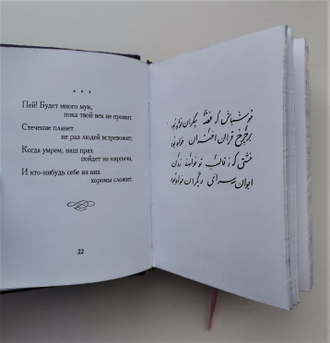 * * *
Пей! Будет много мук,
пока твой век не прожит.
Стечение планет
не раз людей встревожит.
Когда умрем, наш прах
пойдет на кирпичи,
И кто-нибудь себе из них
хоромы сложит.
22
خوش باش که غصه بیکران خواهد بود
بر چرخ قران اختران خواهد بود
خشتی که ز قالب تو خواهند زدن
ایوان سرای دیگران خواهد بود